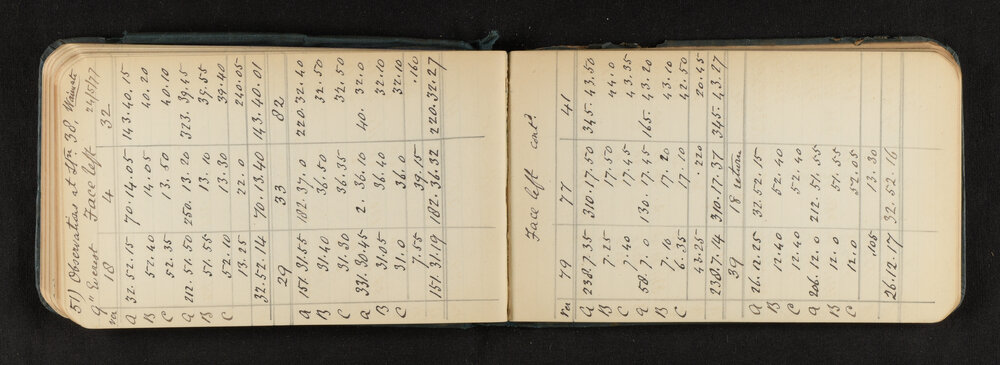 51) Observations at Stn 38, Waimate
9" Everest Face left 24/5/77
ra 18 4 32
A 32.52.15 70.14.05 143.40.15
B 52.40 14.05 40.20
C 52.35 13.50 40.10
A 212.51.50 250.13.20 323.39.45
B 51.55 13.10 39.55
C 52.10 13.30 39.40
13.25 22.0 240.05
32.52.14 70.13.40 143.40.01
29 33 82
A 151.31.55 182.37.0 220.32.40
B 31.40 36.50 32.50
C 31.30 36.35 32.50
A 331.30.45 2.36.10 40.32.0
B 31.05 36.40 32.10
C 31.0 36.0 32.10
7.55 39.15 .160
151.31.19 182.36.32 220.32.27
Face left contd
ra 79 77 41
A 238.7.35 310.17.50 345.43.50
B 7.25 17.50 44.0
C 7.40 17.45 43.35
A 58.7.0 130.17.45 165.43.20
B 7.10 17.20 43.10
C 6.35 17.10 42.50
43.25 .220 20.45
238.7.14 310.17.37 345.43.27
39 18 return
A 26.12.25 32.52.15
B 12.40 52.40
C 12.40 52.40
A 206.12.0 212.51.55
B 12.0 51.55
C 12.10 52.05
.105 13.30
26.12.17 32.52.16